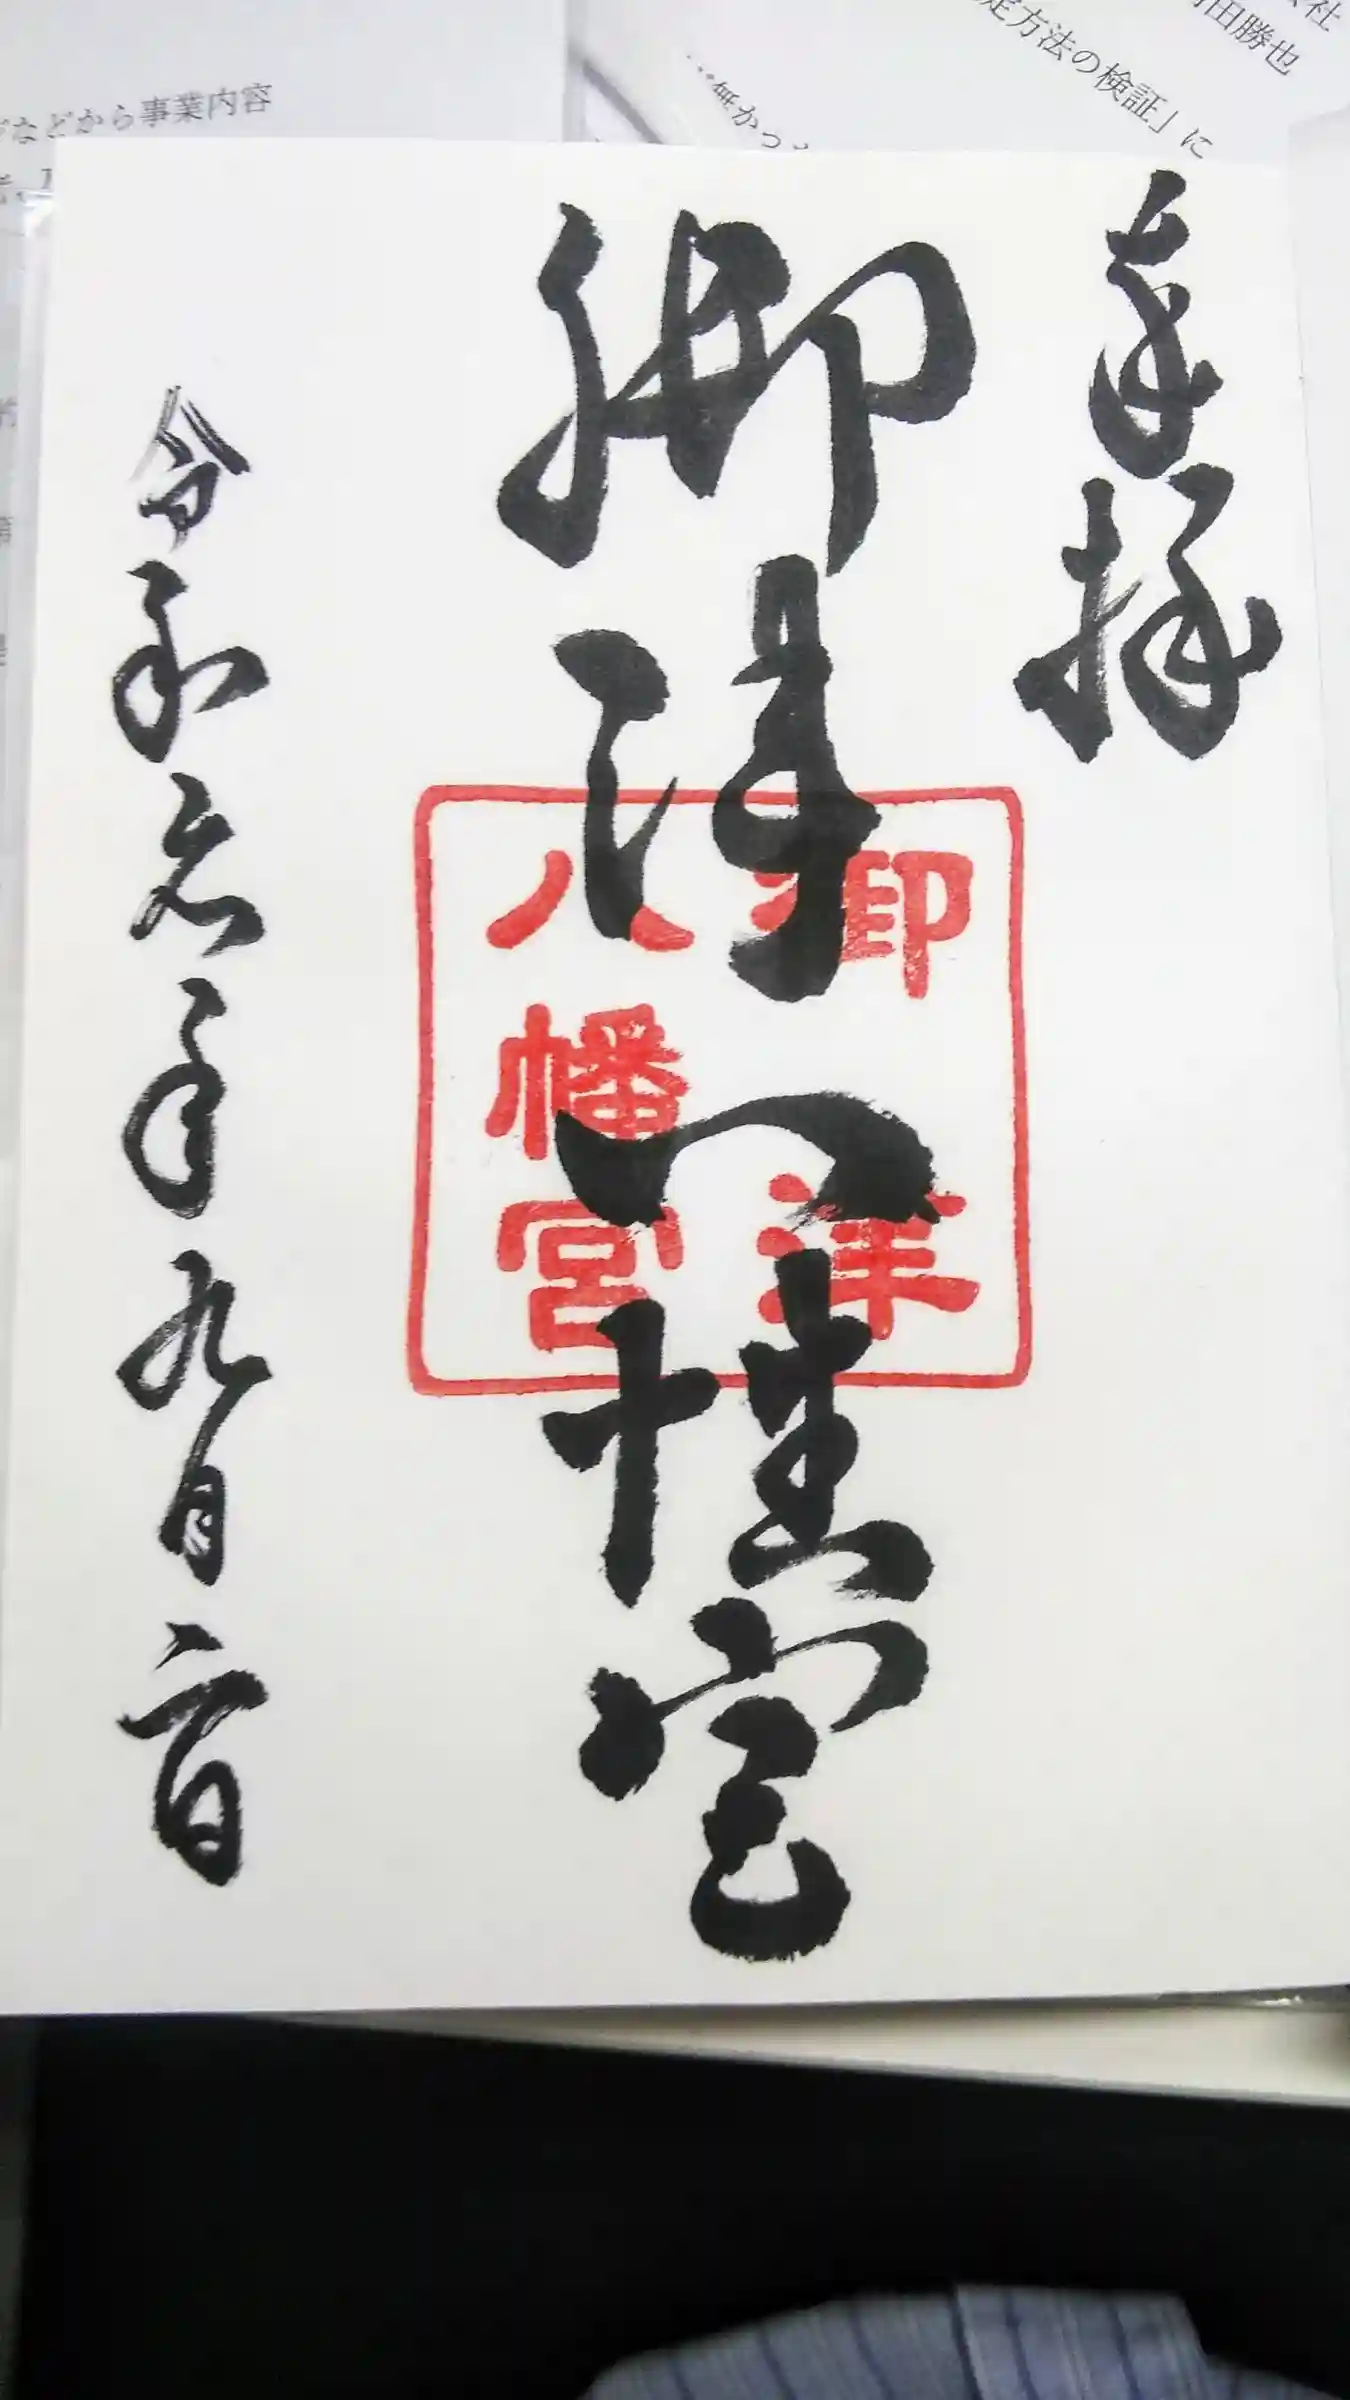 社
田勝也
定方法の検証」に
無かっ
などから事業内容
奉拝
御津八幡宮
御津
八幡宮
令和元年九月二日